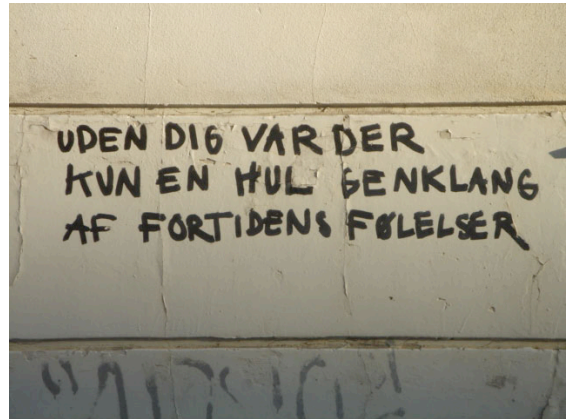 UDEN DIG VAR DER
KUN EN HUL GENKLANG
AF FORTIDENS FØLELSER